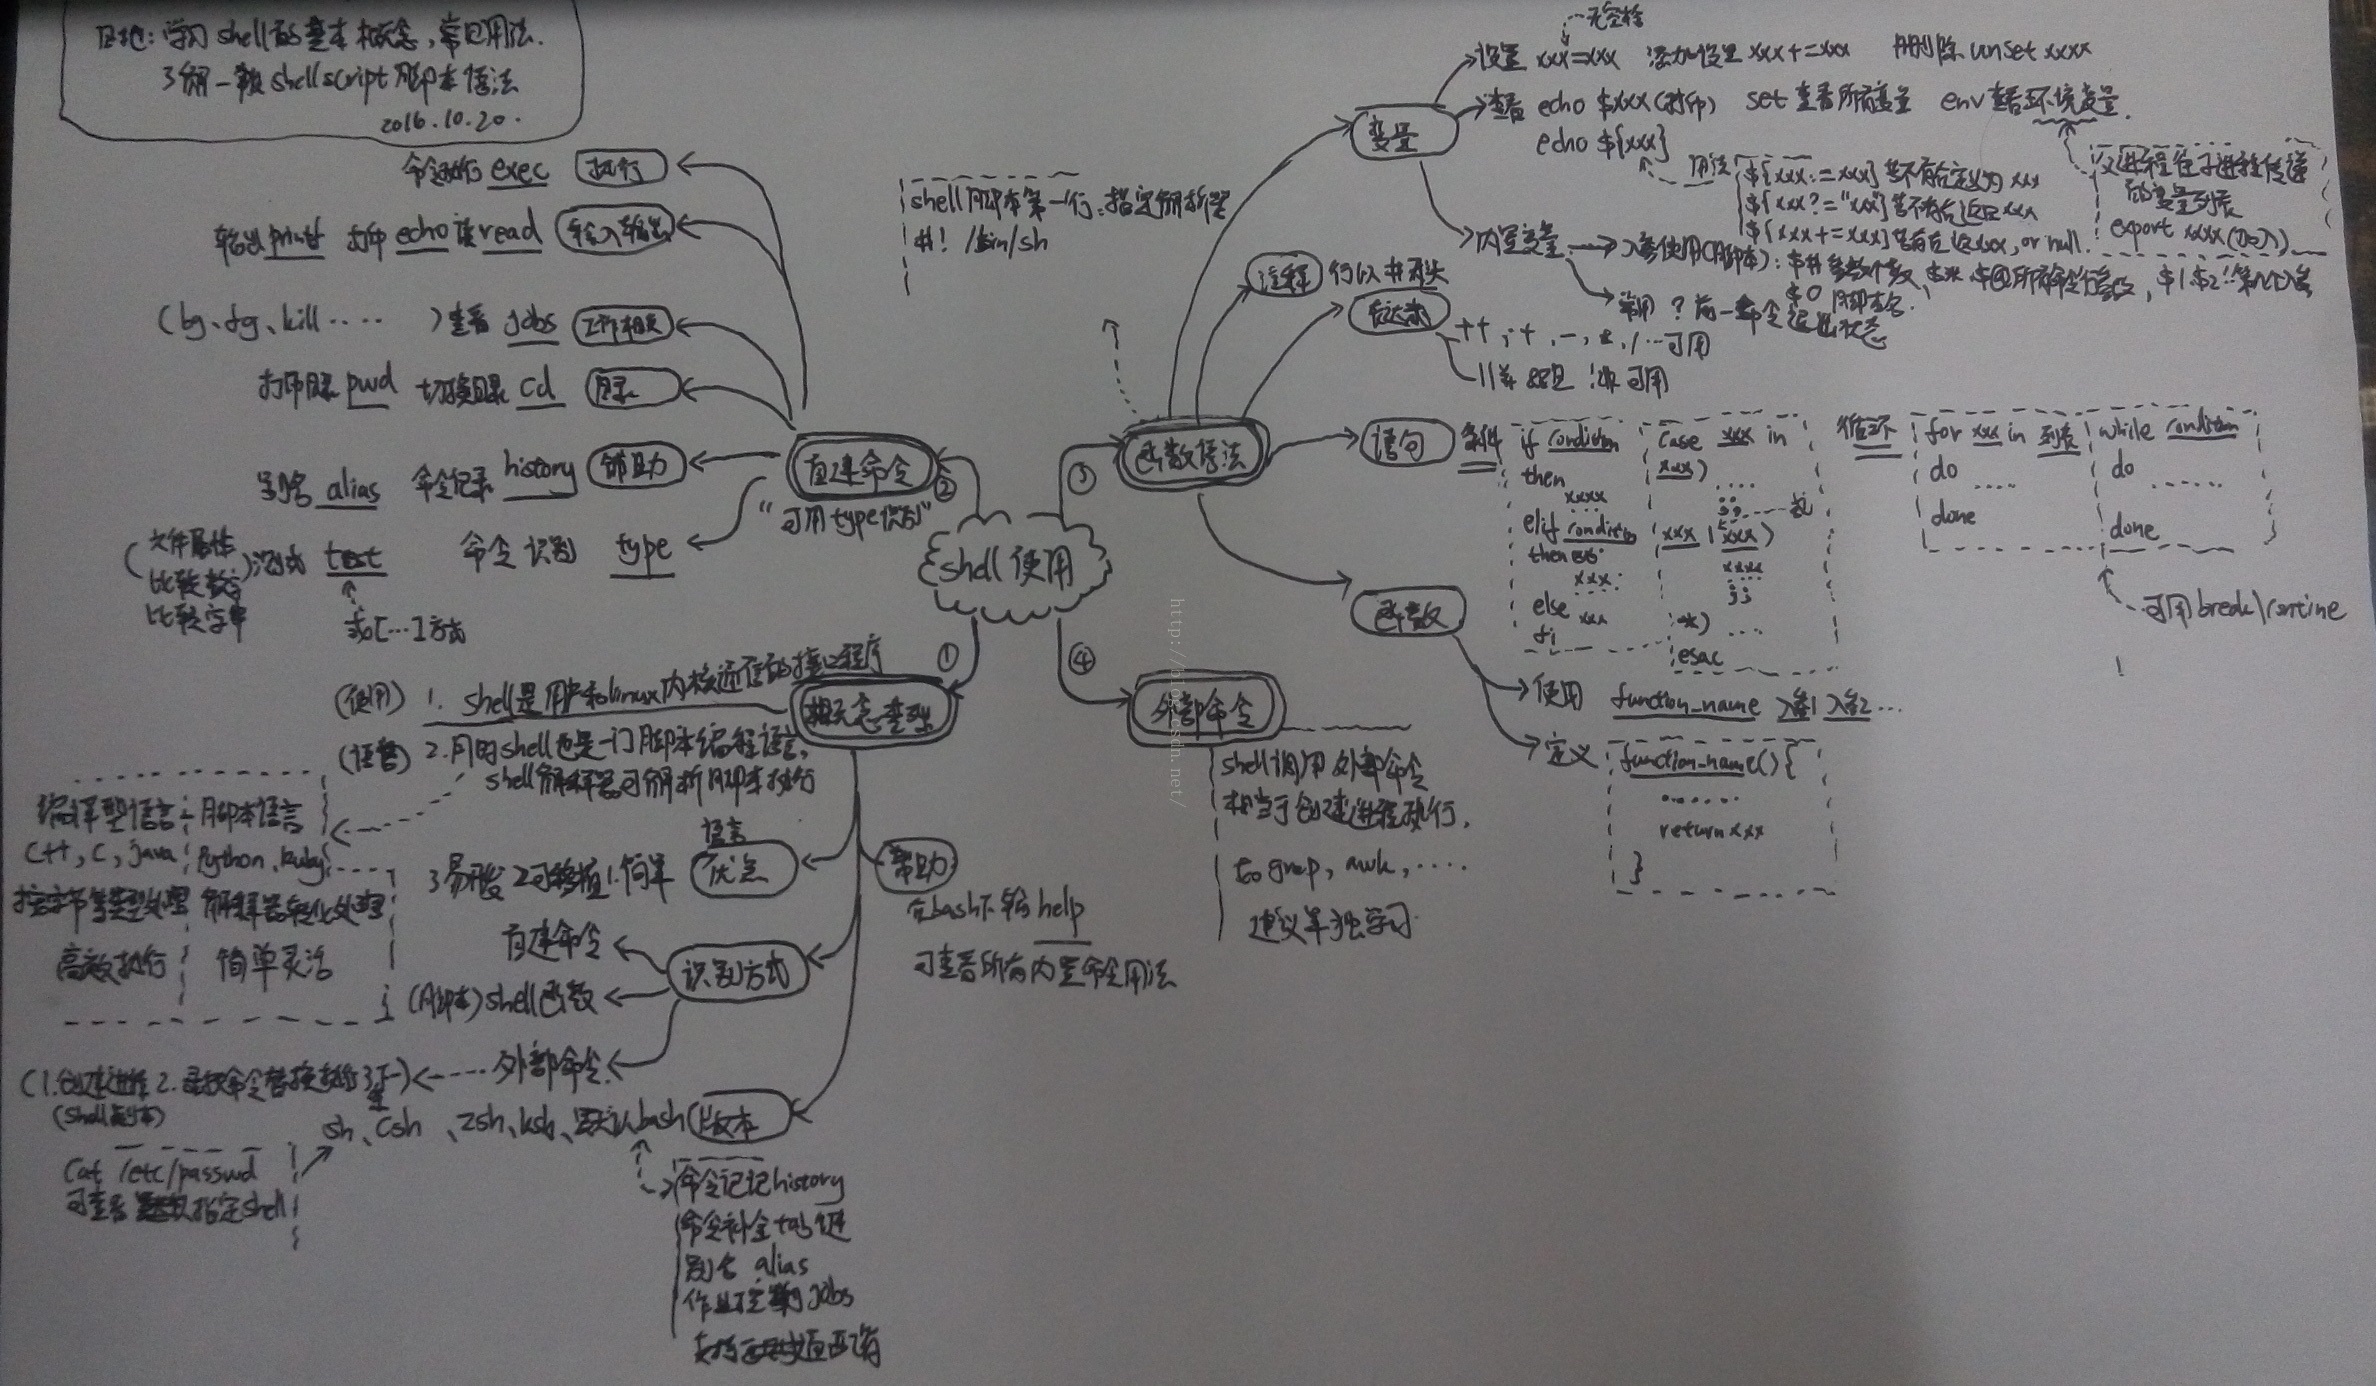 目地:学习shell的基本概念,常见用法.
了解一般shellscript脚本语法
2016.10.20.
命令执行 exec 执行
输出 printf 打印 echo 读 read 输入输出
(bg、fg、kill ····· ) 查看 jobs 工作相关
打印目录 pwd 切换目录 cd 目录
别名 alias 命令记录 history 辅助
(文件属性
比较数字
比较字串) 测试 test 命令识别 type
或[…]方式
自建命令
“可用type识别”
②
shell 使用
① ③ ④
概念整理
(使用) 1. shell是用户和linux内核通信的接口程序
(语言) 2.同时shell也是一门脚本编程语言,
shell解释器可解析脚本执行
编译型语言 脚本语言
C++, C, java Python、Ruby
解释器转化处理
高效执行 简单灵活
语言
优点
3易开发 2可移植 1.简单
帮助
在bash下输 help
可查看所有内置命令用法
识别方式
自建命令
(脚本)shell函数
外部命令
(1.创建进程 2.
(shell副本)
sh、csh、zsh、ksh、默认bash 版本
cat /etc/passwd
可查看 指定shell
命令记记history
命令补全tab键
别名 alias
作业控制jobs
shell脚本第一行:指定解析器
#! /bin/sh
函数语法
变量
无空格
设置 xxx=xxx 添加设置 xxx+=xxx 删除 unset xxxx
查看 echo $xxx(打印) set 查看所有变量 env 查看环境变量.
echo ${xxx}
用法
${xxx:=xxx} 若不存在定义为 xxx
${xxx?="xxx"} 若不存在返回xxx
${xxx+=xxx} 若存在返xxx, or null.
父进程往子进程传递
的变量列表
export xxxx(加入)
内置变量 入参使用(脚本): $#参数个数、$*、$@所有命令行参数, $1.$2
$0 脚本名.
常用 ? 前一命令退出状态
注释 行以#开头
表达式
++, +, -, *, /…可用
||并 &&且 !非 可用
语句 条件
if condition
then
xxxx
elif condition
then
xxx
else
xxx
fi
case xxx in
xxx)
....
;;
xxx | xxx)
xxxx
;;
*) ....
esac
循环
for xxx in 列表
do
.....
done
while condition
do
......
done
可用break\contine
函数
使用 function_name 入参1 入参2 …
定义
function_name() {
......
return xxx
}
外部命令
shell调用外部命令
相当于创建进程执行,
如 grep, awk, ····
建议单独学习
http://blog.csdn.net/